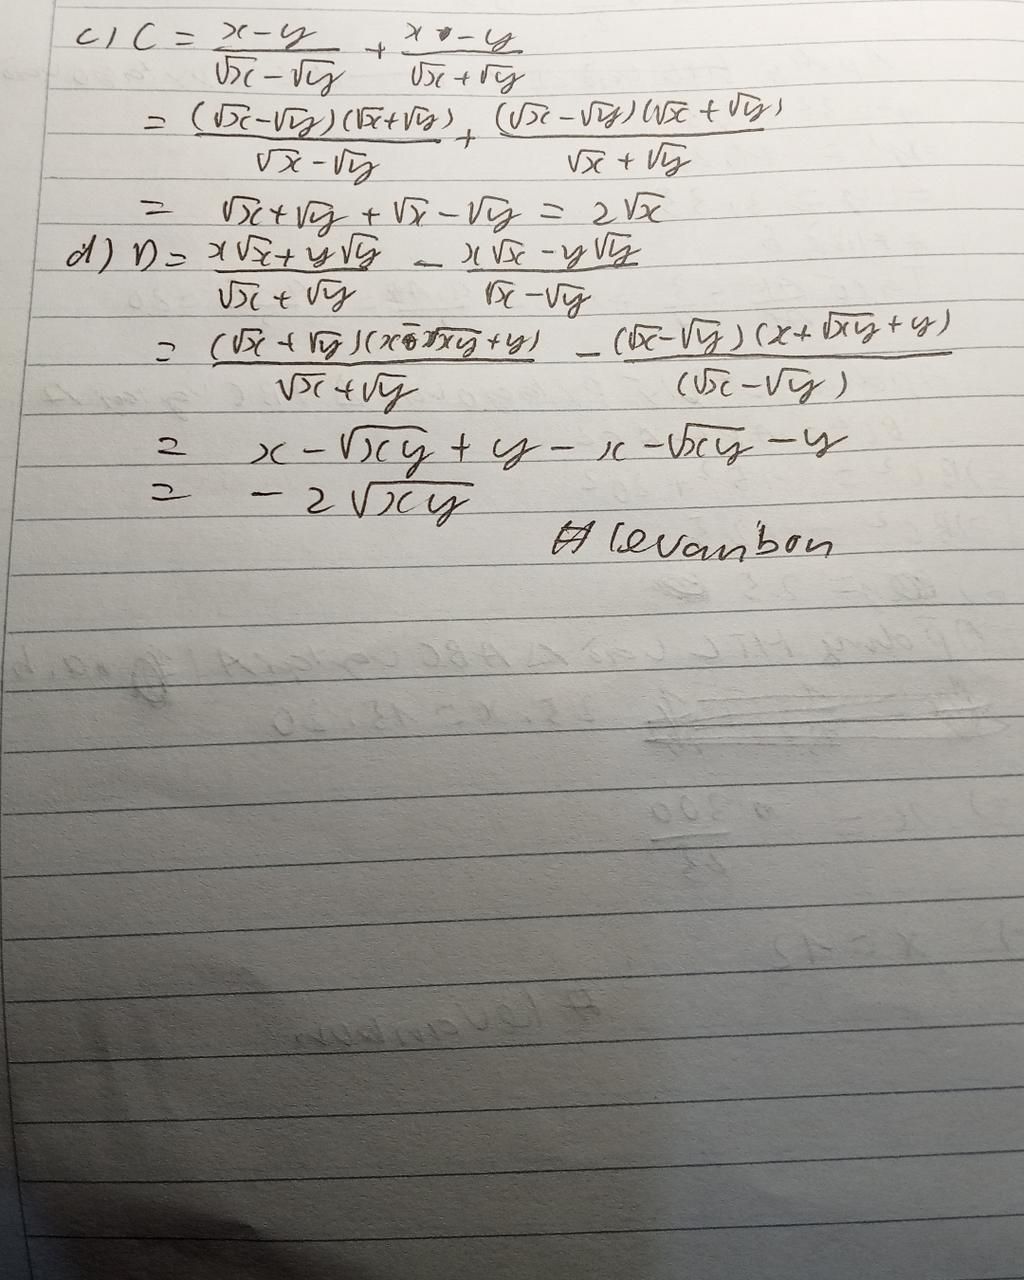 c) C = \frac{x-y}{\sqrt{x}-\sqrt{y}} + \frac{x-y}{\sqrt{x}+\sqrt{y}}
= \frac{(\sqrt{x}-\sqrt{y})(\sqrt{x}+\sqrt{y})}{\sqrt{x}-\sqrt{y}} + \frac{(\sqrt{x}-\sqrt{y})(\sqrt{x}+\sqrt{y})}{\sqrt{x}+\sqrt{y}}
= \sqrt{x}+\sqrt{y}+\sqrt{x}-\sqrt{y} = 2\sqrt{x}
d) D = \frac{x\sqrt{x}+y\sqrt{y}}{\sqrt{x}+\sqrt{y}} - \frac{x\sqrt{x}-y\sqrt{y}}{\sqrt{x}-\sqrt{y}}
= \frac{(\sqrt{x}+\sqrt{y})(x-\sqrt{xy}+y)}{\sqrt{x}+\sqrt{y}} - \frac{(\sqrt{x}-\sqrt{y})(x+\sqrt{xy}+y)}{(\sqrt{x}-\sqrt{y})}
= x-\sqrt{xy}+y-x-\sqrt{xy}-y
= -2\sqrt{xy}
# levanbon